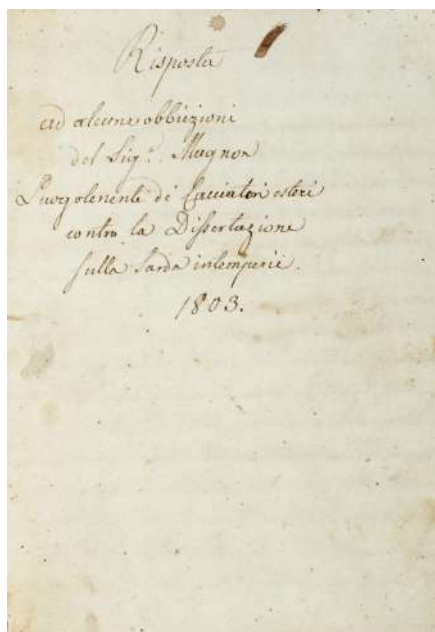 Risposta
ad alcune obbiezioni
del Sig.r Mugnon
Luogotenente de' Cacciatori esteri
contro la Dissertazione
sulla Sarda intemperie.
1803.